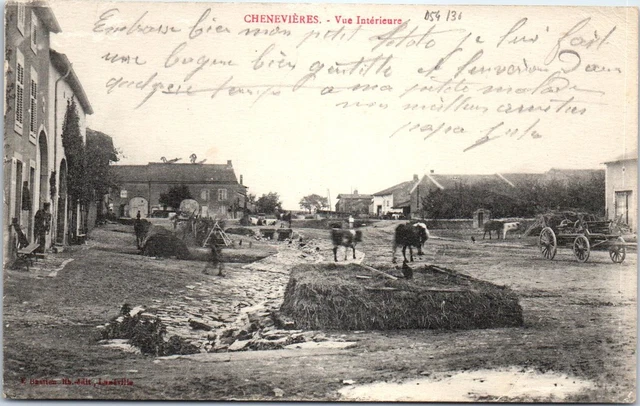 CHENEVIÈRES. - Vue Intérieure
054/31
Embrasse bien mon petit toto je lui fait
une bague bien gentille et l'enverrai dans
quelque temps a ma petite
mon meilleur
papa
E Bastien, lib.-édit., Lunéville